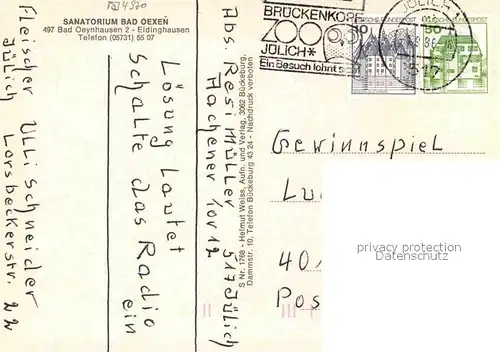 SANATORIUM BAD OEXEN
497 Bad Oeynhausen 2 - Eidinghausen
Telefon (05731) 55 07
Fleischer Ulli Schneider
Jülich Lorsbeckerstr. 22
Lösung Lautet
Schalte das Radio
ein
Abs Resi Müller 517 Jülich
Aachener Tor 12
S Nr. 1768 - Helmut Weiss, Aufn. und Verlag, 3062 Bückeburg,
Dammstr. 10, Telefon Bückeburg 43 24 - Nachdruck verboten
BRÜCKENKOPF
ZOO
JÜLICH*
Ein Besuch lohnt
DEUTSCHE BUNDESPOST
DEUTSCHE BUNDESPOST
50
JÜLICH
517
Gewinnspiel
Lu
40
Pos
privacy protection
Datenschutz